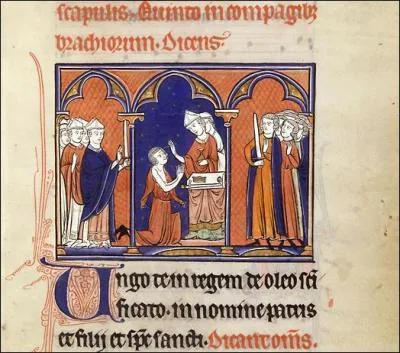 scapulis. Quinto in compagibꝫ
brachiorum. Dicens.
Ungo te in regem de oleo scī
ficato. in nomine patris
et filij et spc sancti. Dicant om̄s.